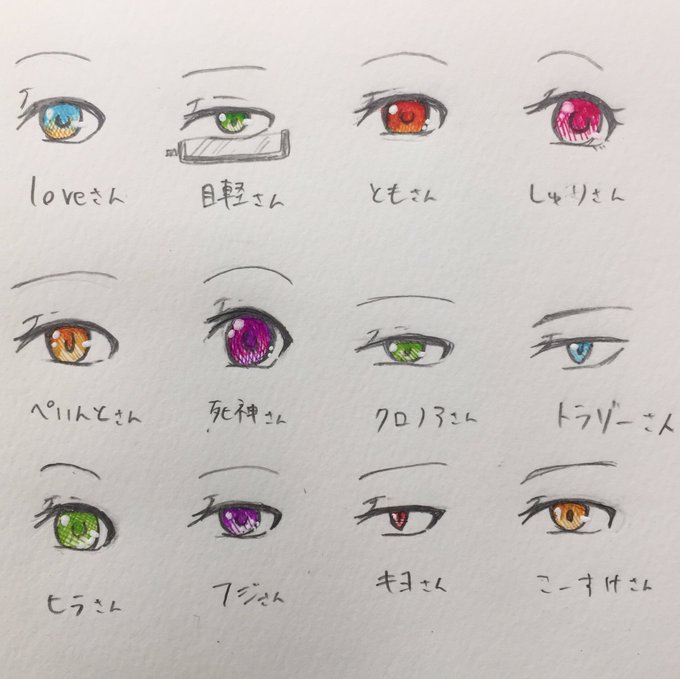 loveさん
目軽さん
ともさん
しゅりさん
ぺいんとさん
死神さん
クロノアさん
トラゾーさん
ヒラさん
フジさん
キヨさん
こーすけさん